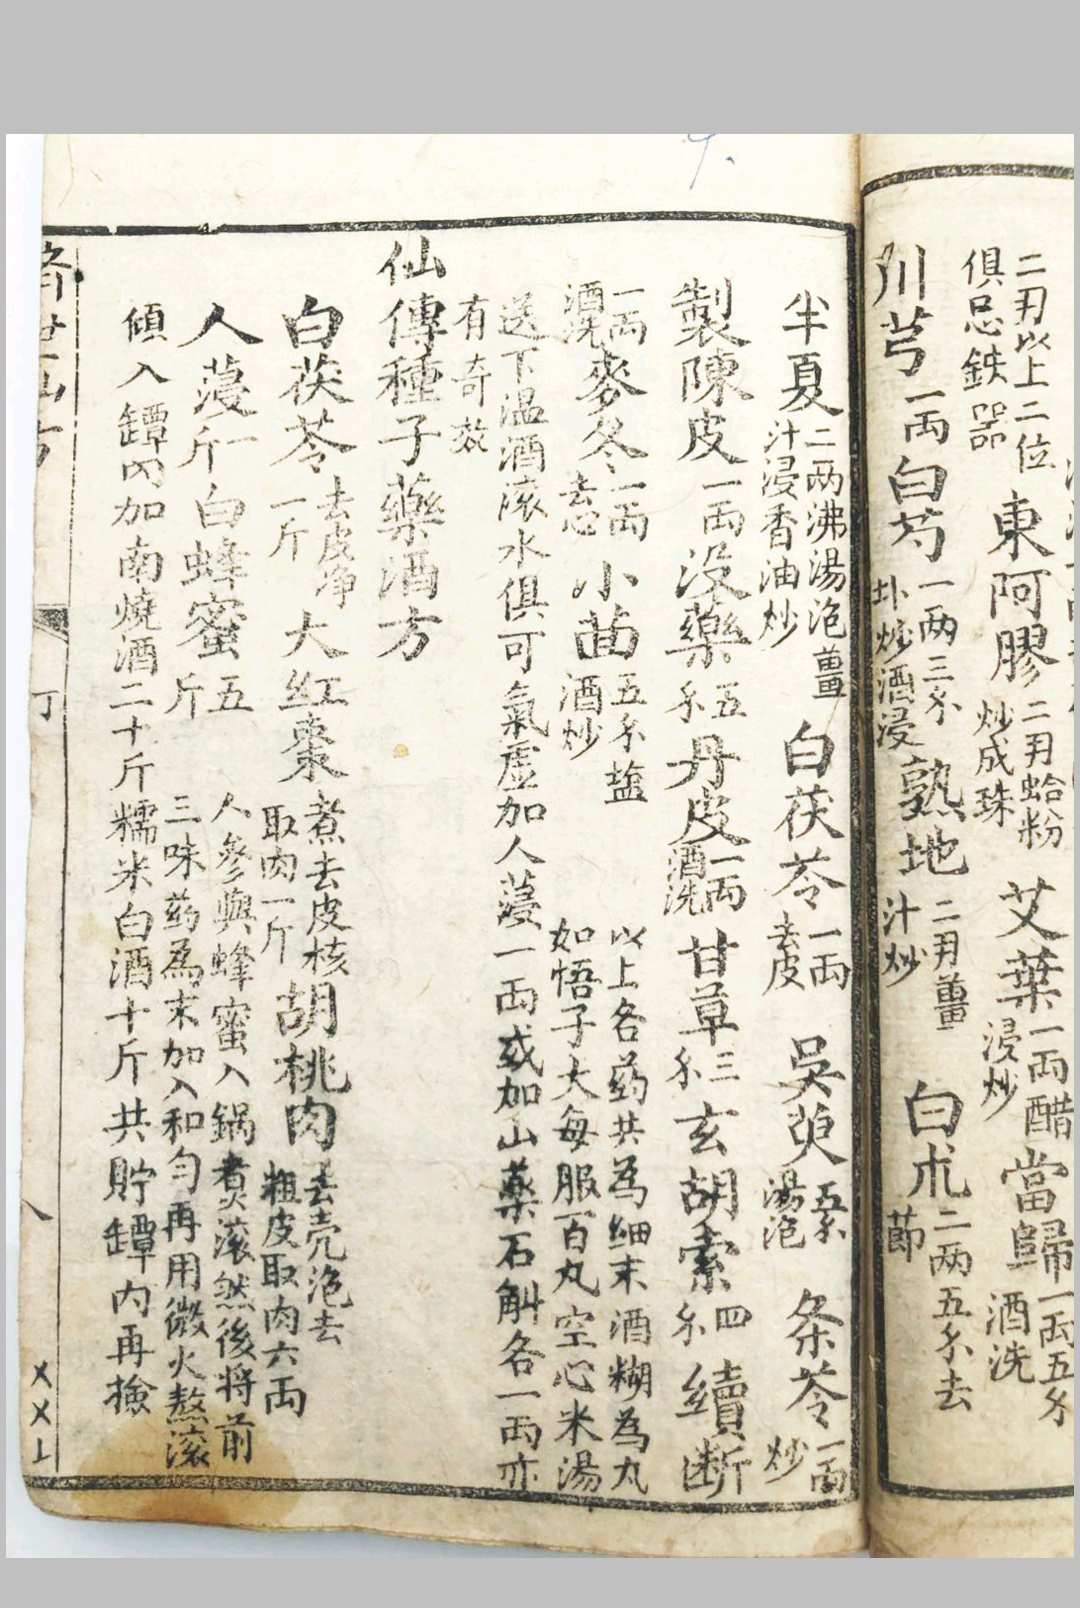 二刄以上二位
俱忌鉄器
東阿膠
二刄蛤粉
炒成珠
艾葉
一両醋
浸炒
當歸
一両五分
酒洗
川芎
一両
白芍
一两三分
炒酒浸
熟地
二刄薑
汁炒
白朮
二两五分去
節
半夏
二两沸湯泡薑
汁浸香油炒
白茯苓
一両
去皮
吳萸
五分
湯泡
条苓
一両
炒
製陳皮
一両
没藥
五
分
丹皮
一両
酒洗
甘草
三
分
玄胡索
四
分
續断
一両
酒洗
麥冬
一両
去心
小茴
五分盐
酒炒
以上各药共為细末酒糊為丸
如悟子大每服百丸空心米湯
送下温酒滚水俱可氣虚加人蓡一両或加山藥石斛各一両亦
有奇效
仙傳種子藥酒方
白茯苓
去皮净
一斤
大红棗
煮去皮核
取肉一斤
胡桃肉
去壳泡去
粗皮取肉六両
人蓡
一
斤
白蜂蜜
五
斤
人參與蜂蜜入鍋煮滚然後将前
三味药為末加入和匀再用微火熬滚
傾入罈內加南燒酒二十斤糯米白酒十斤共貯罈內再撿
済世仙方
丁
八